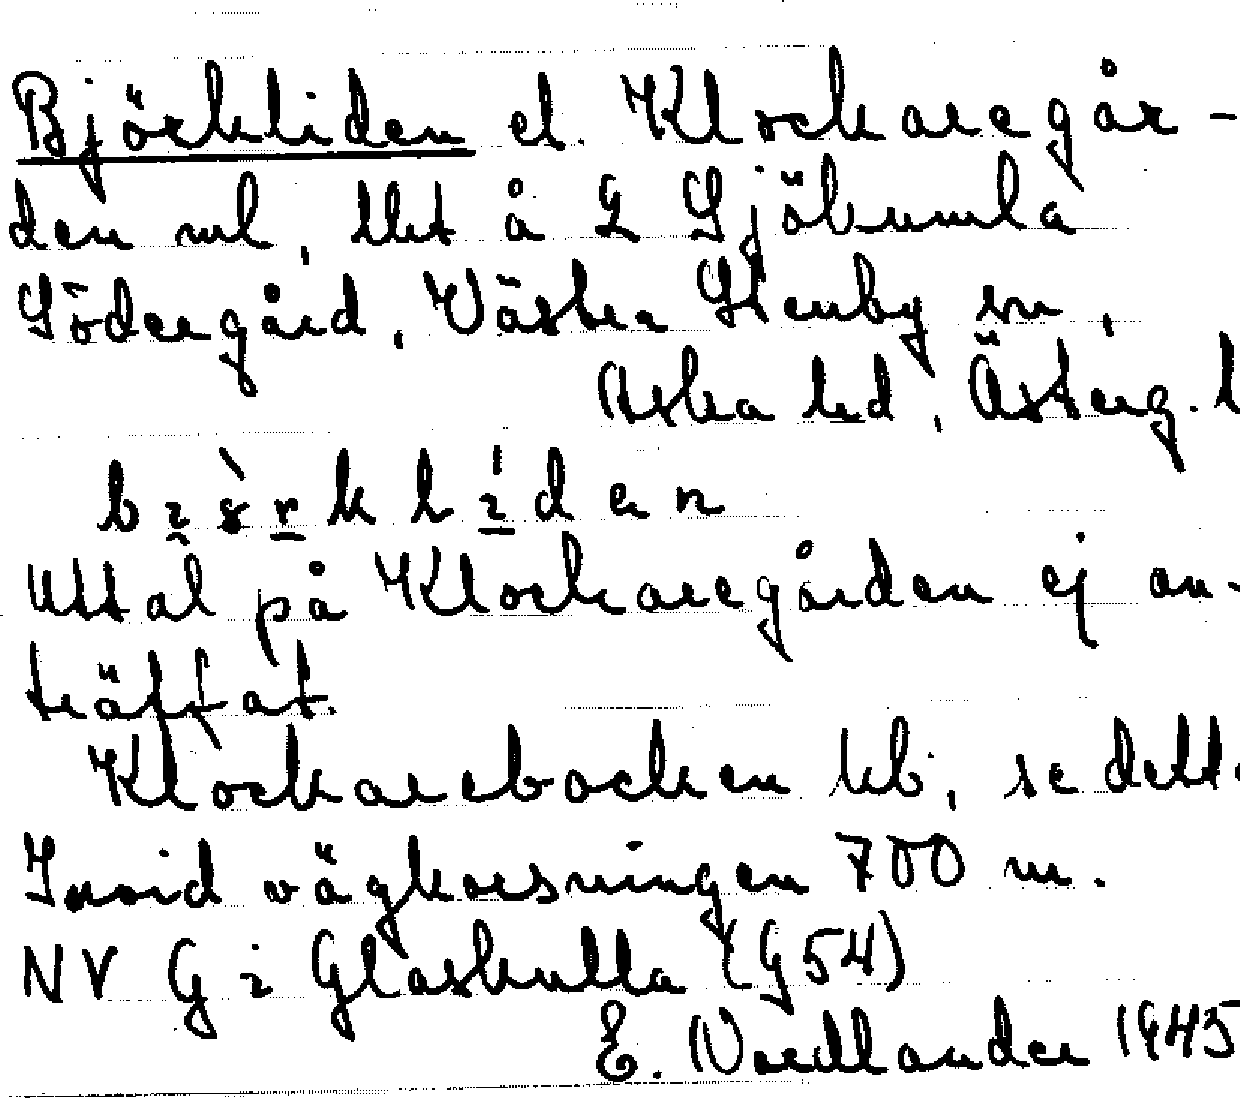 Björkliden el. Klockaregår-
den ml, tht å 2 Sjökumla
Södergård, Västra Stenby sn,
Aska hd, Österg. l
bɪörklɪden
Uttal på Klockaregården ej an-
träffat.
Klockarebacken kb, se detta
Invid vägkorsningen 700 m.
NV G i Glaskulla (G54)
E. Nordlander 1945